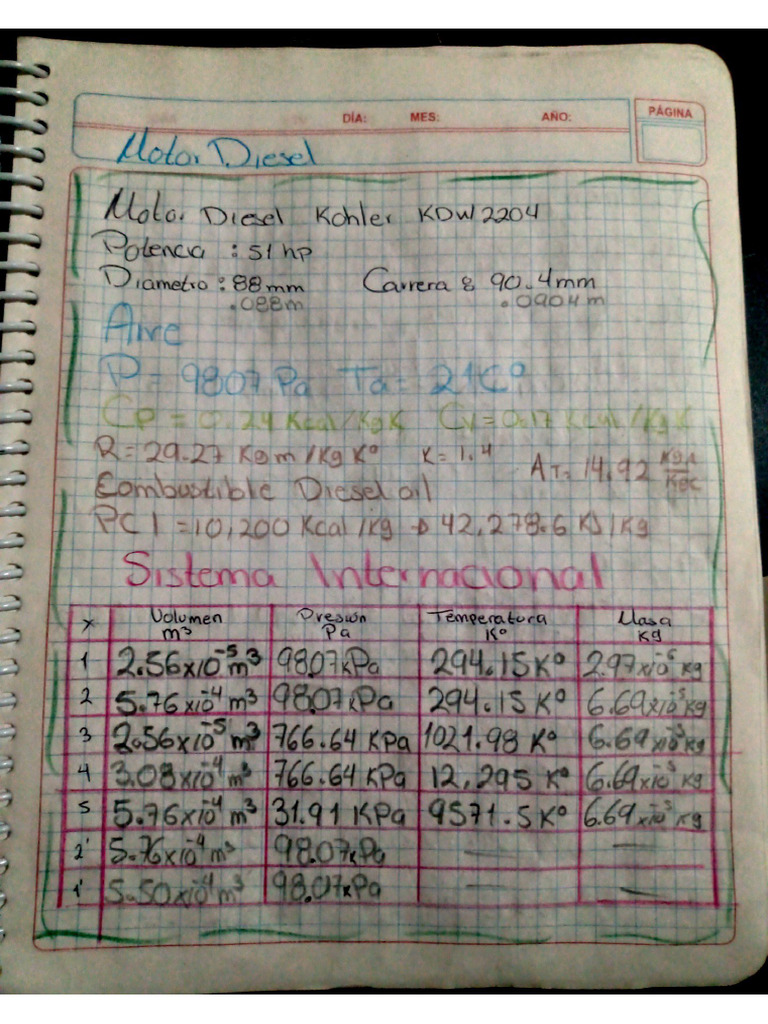 DÍA: MES: AÑO: PÁGINA
Motor Diesel
Motor Diesel Kohler KDW2204
Potencia : 51 hp
Diametro : 88mm Carrera : 90.4mm
.088m .0904m
Aire
P = 9807 Pa Ta = 21C°
Cp = 0.24 Kcal/KgK Cv = 0.17 Kcal/Kg K
R = 29.27 Kgm/Kg K° K = 1.4 AT = 14.92 KgA/KgC
Combustible Diesel oil
PCI = 10,200 Kcal/kg → 42,278.6 KJ/Kg
Sistema Internacional
x Volumen m³ Presión Pa Temperatura K° Masa kg
1 2.56x10⁻⁵m³ 98.07kPa 294.15 K° 2.97x10⁻⁵ kg
2 5.76x10⁻⁴ m³ 98.07kPa 294.15 K° 6.69x10⁻³kg
3 2.56x10⁻⁵ m³ 766.64 KPa 1021.98 K° 6.69x10⁻³ kg
4 3.08x10⁻⁴ m³ 766.64 KPa 12,295 K° 6.69x10⁻³ kg
5 5.76x10⁻⁴ m³ 31.91 KPa 9571.5 K° 6.69x10⁻³ kg
2' 5.76x10⁻⁴ m³ 98.07kPa — —
1' 5.50x10⁻⁴ m³ 98.07kPa — —